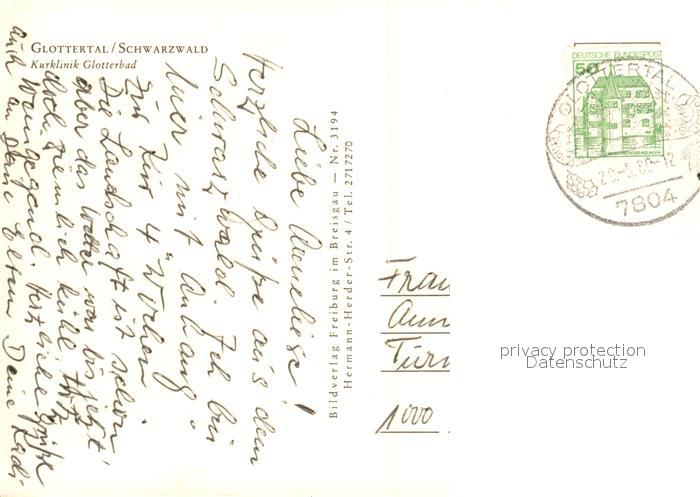 GLOTTERTAL / SCHWARZWALD
Kurklinik Glotterbad
Liebe Anneliese!
Herzliche Grüße aus dem
Schwarzwald. Ich bin
hier mit "Anhang"
zur Kur 4 Wochen.
Die Landschaft ist schön
aber das Wetter war bis jetzt
doch ziemlich kühl.
Herzliche Grüße
auch an Deine Eltern Deine
Bildverlag Freiburg im Breisgau — Nr. 3194
Hermann-Herder-Str. 4 / Tel. 2717270
DEUTSCHE BUNDESPOST
50
GLOTTERTAL
7804
Frau
Ann
Türn
1000
privacy protection
Datenschutz